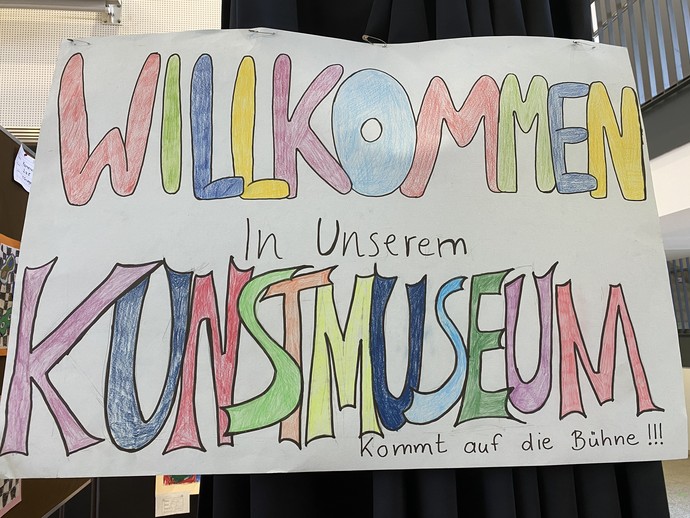 WILLKOMMEN
In Unserem
KUNSTMUSEUM
Kommt auf die Bühne!!!